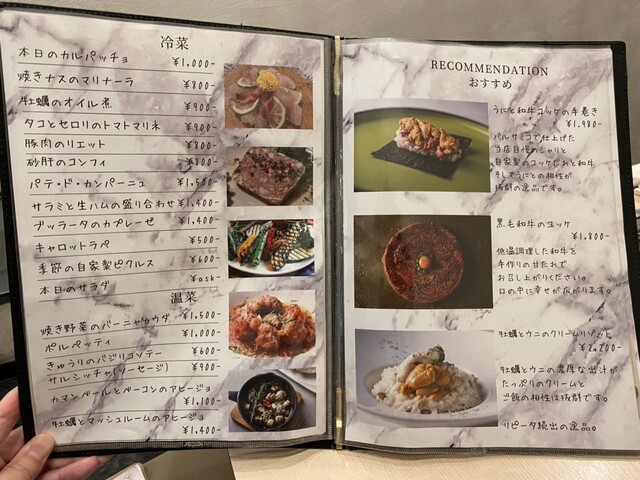 冷菜
本日のカルパッチョ
¥1,000-
焼きナスのマリナーラ
¥800-
牡蠣のオイル煮
¥900-
タコとセロリのトマトマリネ
¥900-
豚肉のリエット
¥800-
砂肝のコンフィ
パテ・ド・カンパーニュ
¥1,500-
サラミと生ハムの盛り合わせ ¥1,400-
ブッラータのカプレーゼ
¥1,400-
キャロットラペ
¥500-
季節の自家製ピクルス
¥600-
本日のサラダ
¥ask-
温菜
焼き野菜のバーニャカウダ
¥1,500-
ポルペッティ
¥1,000-
きゅうりのバジリコソテー
¥600-
サルシッチャ(ソーセージ)
¥900-
カマンベールとベーコンのアヒージョ
¥1,100-
牡蠣とマッシュルームのアヒージョ
¥1,400-
RECOMMENDATION
おすすめ
うにと和牛ユッケの手巻き
¥1,980-
バルサミコで仕上げた
当店自慢のシャリと
自家製のユッケだれと和牛
そしてうにとの相性が
抜群の逸品です。
黒毛和牛のユッケ
¥1,800-
低温調理した和牛を
手作りの甘だれで
お召し上がりください。
口の中に幸せが広がります。
牡蠣とウニのクリームリゾット
¥2,200-
牡蠣とウニの濃厚な出汁が
たっぷりのクリームと
ご飯の相性は抜群です。
リピータ続出の逸品。